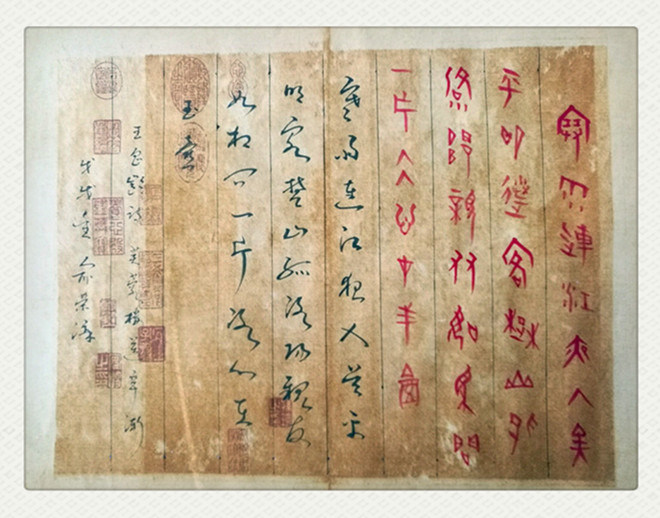 寒雨連江夜入吳
平明送客楚山孤
洛陽親友如相問
一片冰心在玉壺
寒雨連江夜入吳平
明客楚山孤洛陽親友
如相问一片冰心在
玉壺
王昌齡詩 芙蓉樓送辛漸
戊戌 俞荣